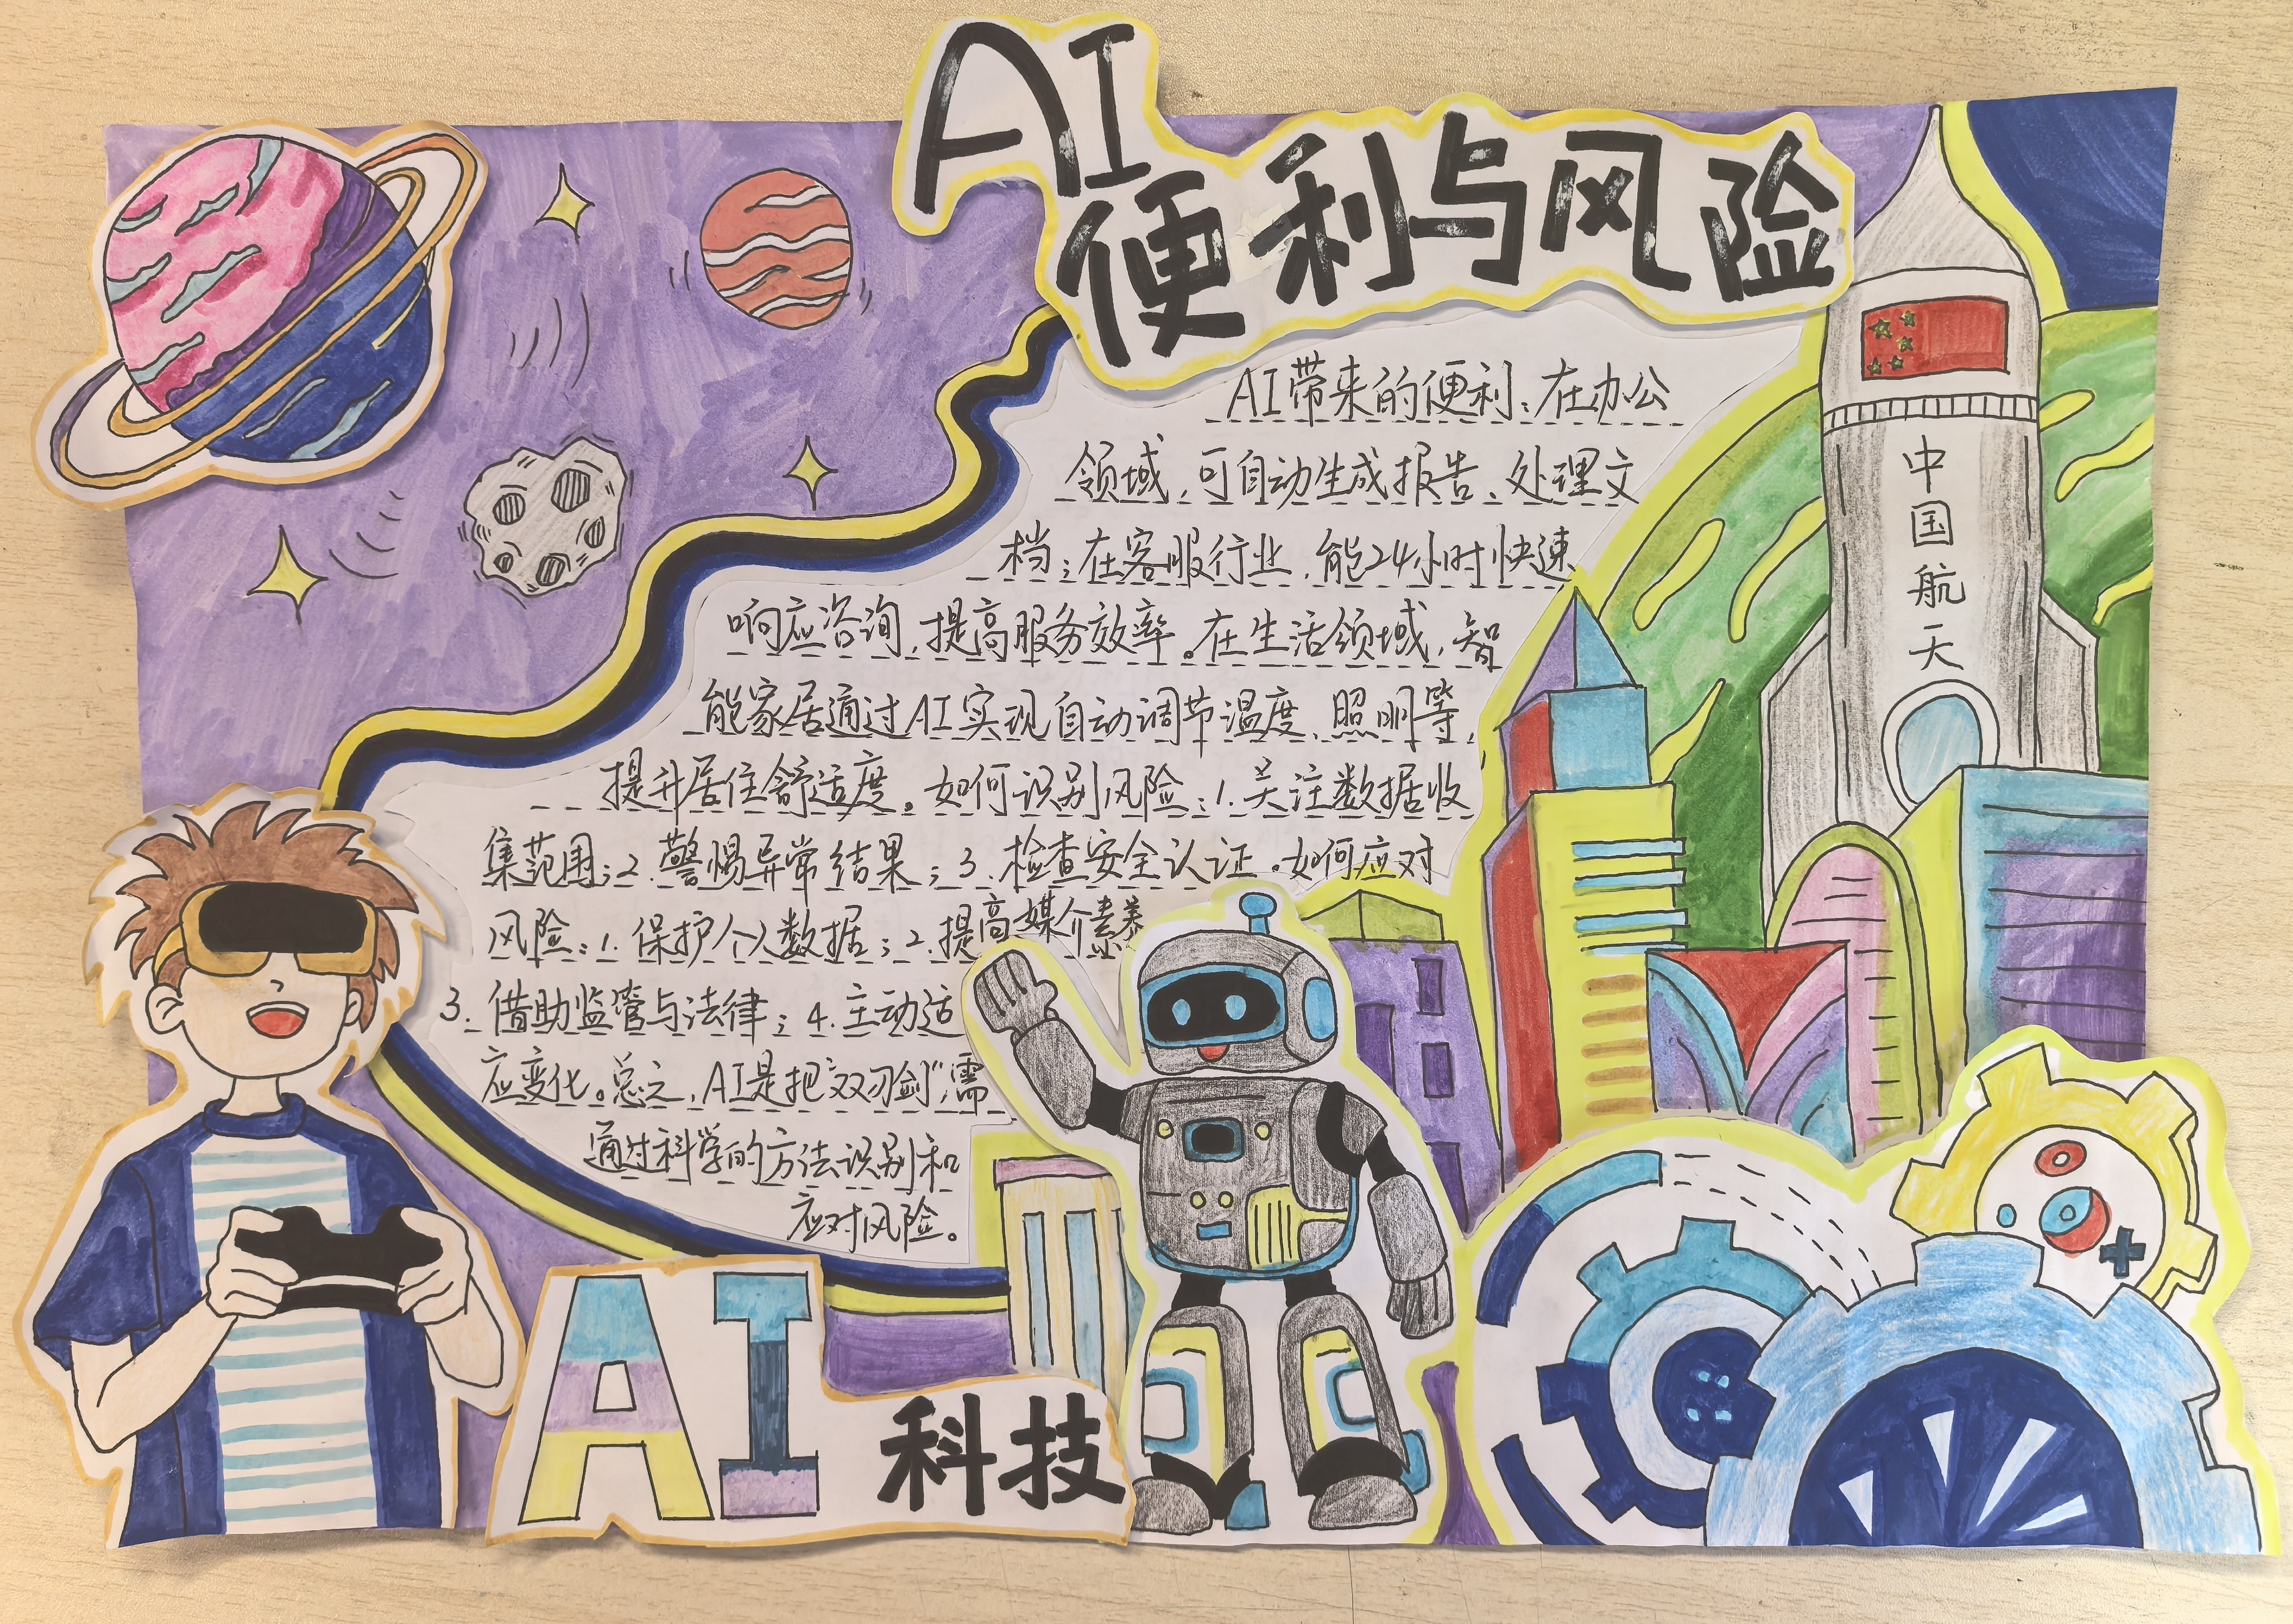 AI
便利与风险
AI带来的便利:在办公
领域,可自动生成报告、处理文
档;在客服行业,能24小时快速
响应咨询,提高服务效率。在生活领域,智
能家居通过AI实现自动调节温度、照明等,
提升居住舒适度。如何识别风险:1.关注数据收
集范围;2.警惕异常结果;3.检查安全认证。如何应对
风险:1.保护个人数据;2.提高媒介素养
3.借助监管与法律;4.主动适
应变化。总之,AI是把“双刃剑”,需
通过科学的方法识别和
应对风险。
中国航天
AI
科技